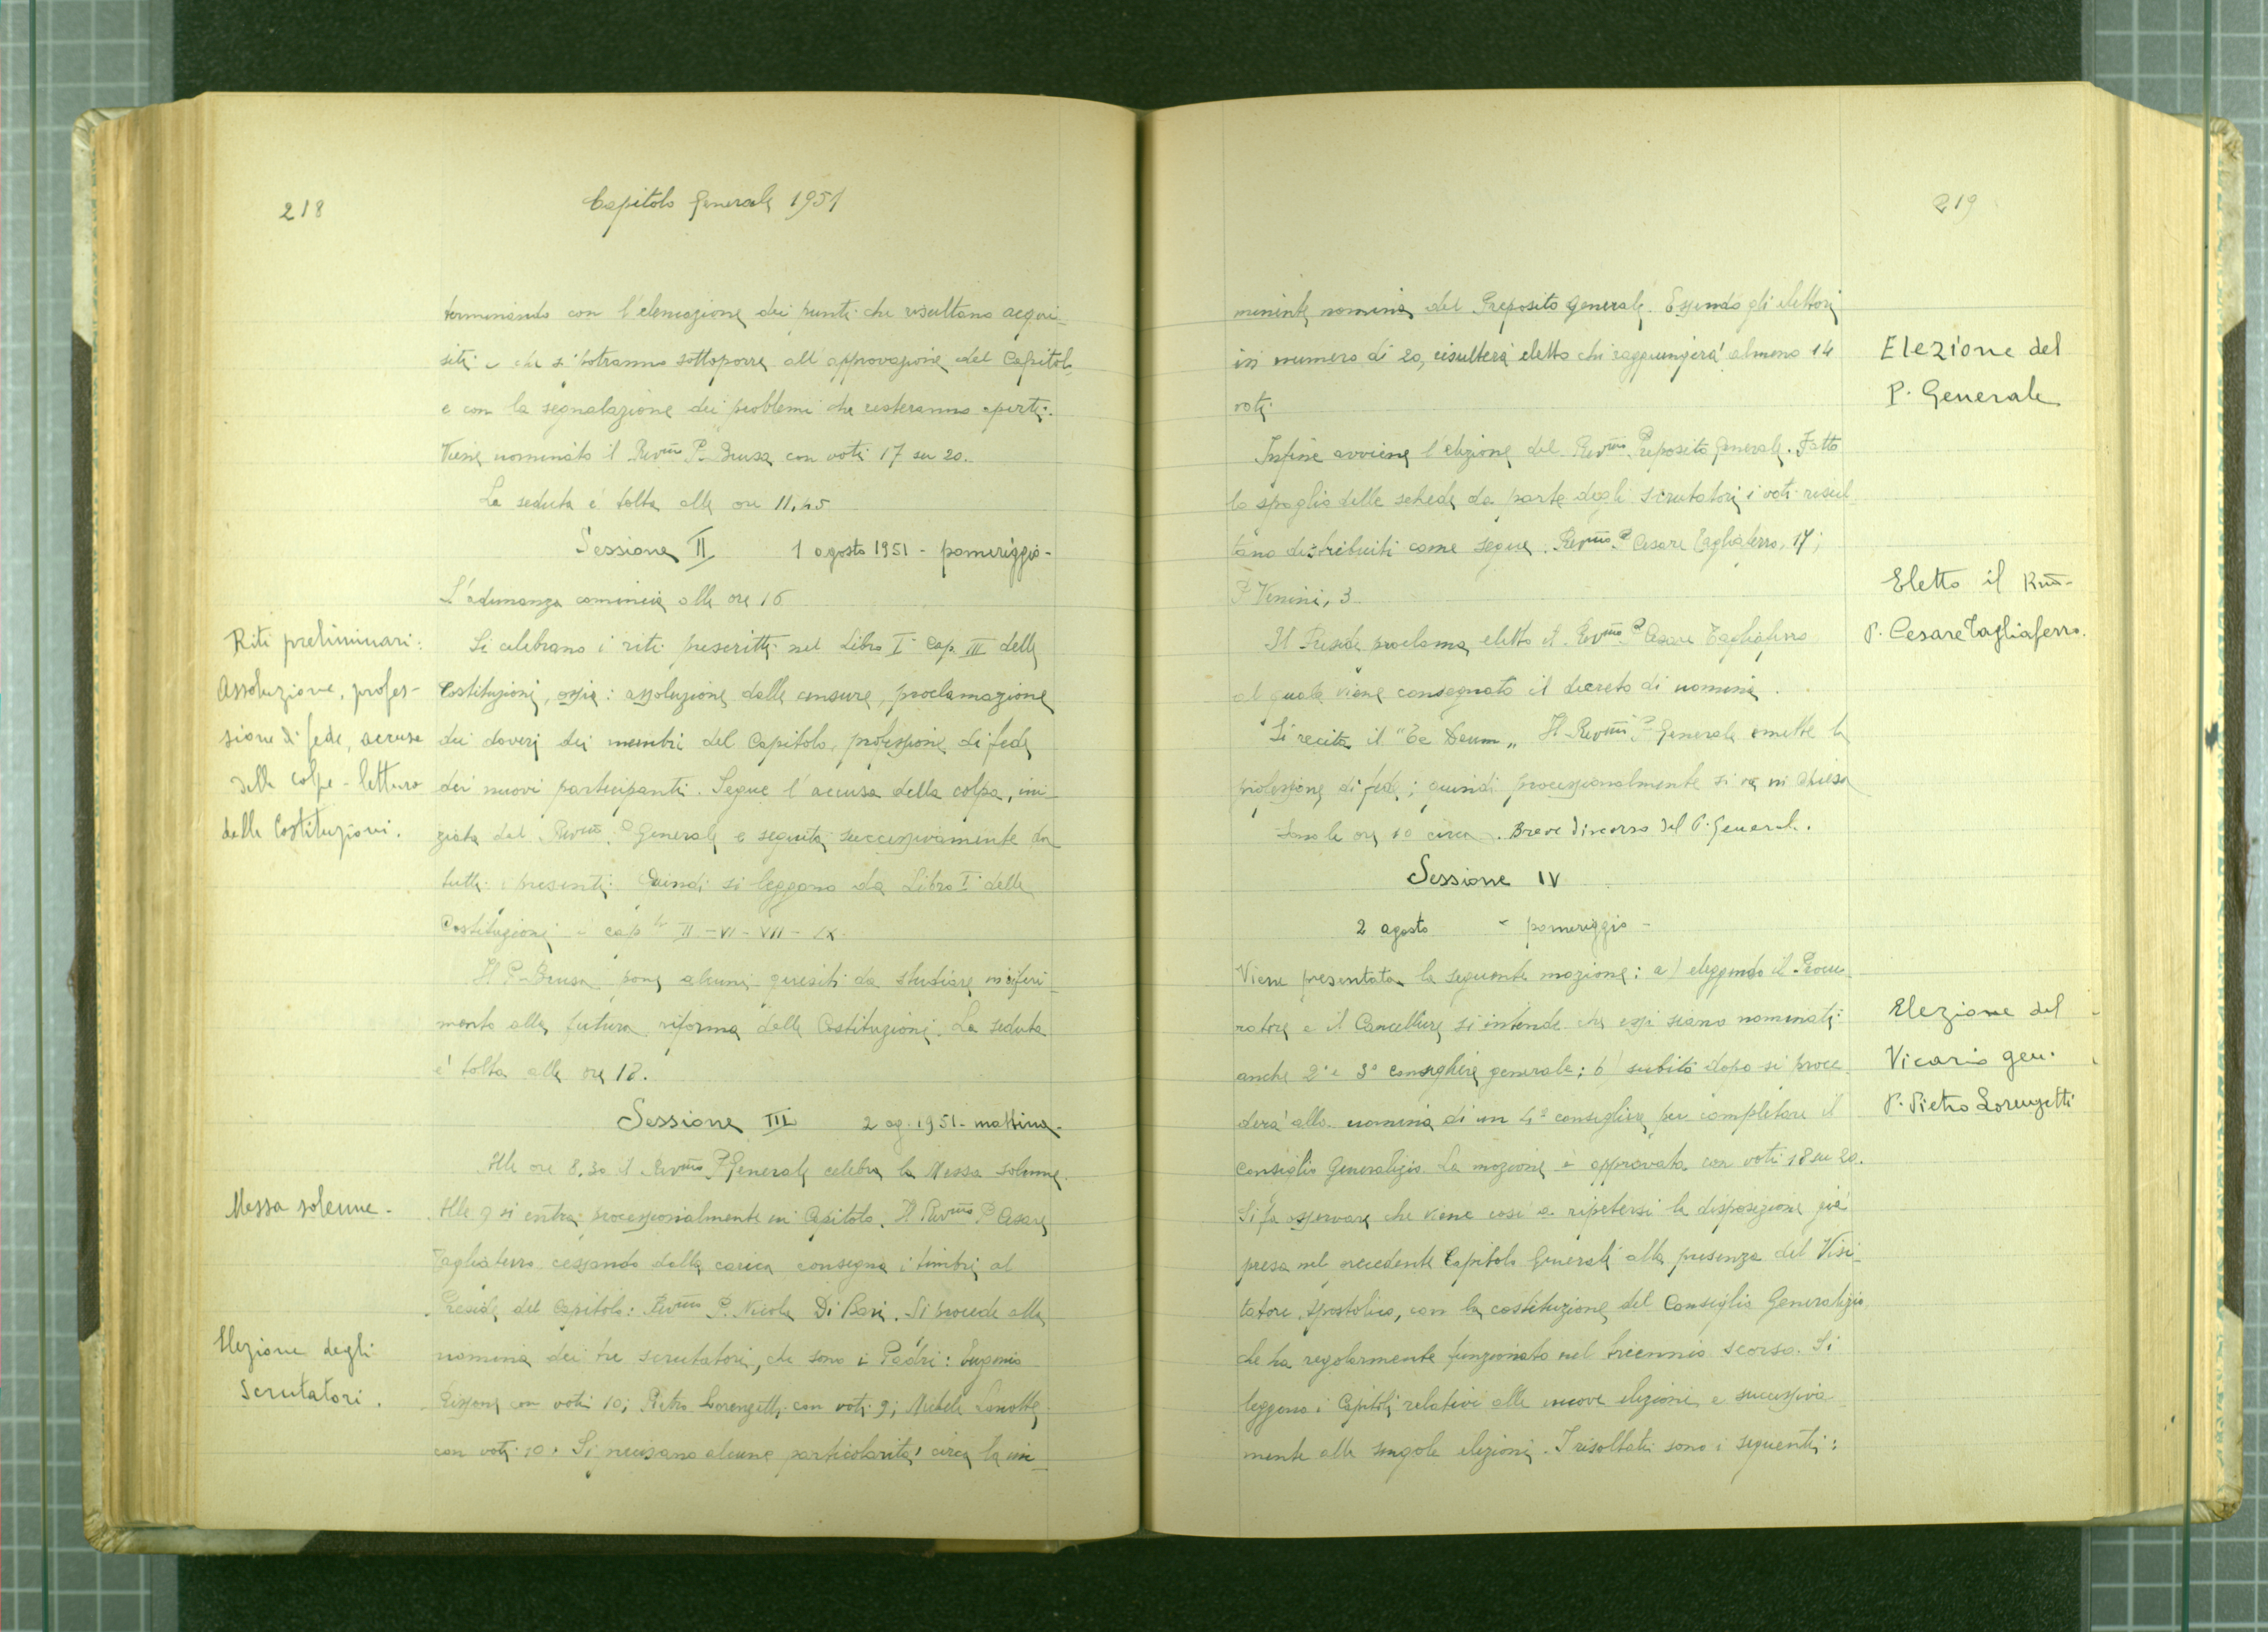 218
Capitolo Generale 1951
terminando con l'elencazione dei punti che risultano acqui-
siti e che si potranno sottoporre all'approvazione del Capitolo
e con la segnalazione dei problemi che resteranno aperti.
Viene nominato il Rev.mo P. Brusa con voti 17 su 20.
La seduta è tolta alle ore 11,45
Sessione II 1 agosto 1951 - pomeriggio -
L'adunanza comincia alle ore 16
Riti preliminari:
Assoluzione, profes-
sione di fede, accusa
delle colpe - lettura
delle Costituzioni.
Si celebrano i riti prescritti nel Libro I cap. III delle
Costituzioni, ossia: assoluzione dalle censure, proclamazione
dei doveri dei membri del Capitolo, professione di fede
dei nuovi partecipanti. Segue l'accusa della colpa, ini-
ziata dal Rev.mo P. Generale e seguita successivamente da
tutti i presenti. Quindi si leggono da Libro I delle
Costituzioni i cap. II - VI - VII - IX.
Il P. Brusa pone alcuni quesiti da studiare in riferi-
mento alla futura riforma delle Costituzioni. La seduta
è tolta alle ore 18.
Sessione III 2 ag. 1951 - mattina -
Messa solenne -
Alle ore 8.30 il Rev.mo P. Generale celebra la Messa solenne.
Alle 9 si entra processionalmente in Capitolo. Il Rev.mo P. Cesare
Tagliaferro cessando dalla carica consegna i timbri al
Preside del Capitolo: Rev.mo P. Nicola Di Bari. Si procede alla
Elezione degli
Scrutatori.
nomina dei tre scrutatori, che sono i Padri: Eugenio
con voti 10; Pietro Lorenzetti con voti 9; Michele
con voti 10. Si precisano alcune particolarità circa la im-
219
minente nomina del Preposito Generale. Essendo gli elettori
in numero di 20, risulterà eletto chi raggiungerà almeno 14
voti.
Elezione del
P. Generale
Infine avviene l'elezione del Rev.mo Preposito Generale. Fatto
lo spoglio delle schede da parte degli scrutatori i voti risul-
tano distribuiti come segue. Rev.mo P. Cesare Tagliaferro, 17;
P. Venini, 3
Eletto il Rmo
P. Cesare Tagliaferro.
Il Preside proclama eletto il Rev.mo P. Cesare Tagliaferro
al quale viene consegnato il decreto di nomina.
Si recita il "Te Deum„ Il Rev.mo P. Generale emette la
professione di fede; quindi processionalmente si va in Chiesa
Sono le ore 10 circa. Breve discorso del P. Generale.
Sessione IV
2 agosto - pomeriggio -
Viene presentata la seguente mozione: a) eleggendo il Procu-
ratore e il Cancelliere si intende che essi siano nominati
anche 2° e 3° consigliere generale; b) subito dopo si proce-
derà alla nomina di un 4° consigliere per completare il
Consiglio Generalizio. La mozione è approvata con voti 18 su 20.
Elezione del
Vicario gen.
P. Pietro Lorenzetti
Si fa osservare che viene così a ripetersi la disposizione già
presa nel precedente Capitolo Generale alla presenza del Visi-
tatore Apostolico, con la costituzione del Consiglio Generalizio
che ha regolarmente funzionato nel triennio scorso. Si
leggono i Capitoli relativi alle nuove elezioni e successiva-
mente alle singole elezioni. I risultati sono i seguenti: